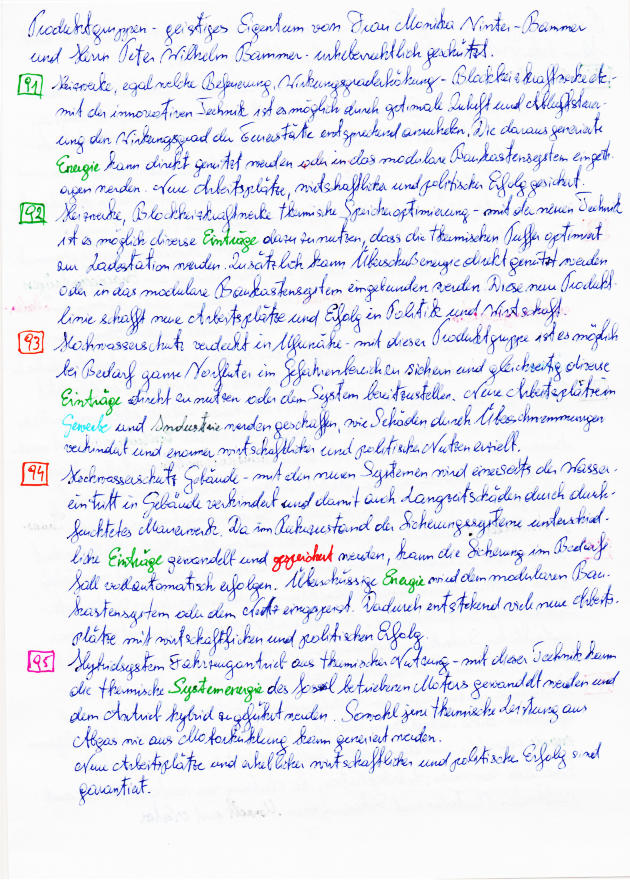 Produktgruppen - geistiges Eigentum von Frau Monika Winter-Bammer
und Herrn Peter Wilhelm Bammer - urheberrechtlich geschützt.
91 Heizwerke, egal welche Befeuerung, Wirkungsgraderhöhung - Blockheizkraftwerke etc. -
mit der innovativen Technik ist es möglich durch optimale Zuluft und Abluftsteuer-
ung den Wirkungsgrad der Feuerstätte entsprechend anzuheben. Die daraus generierte
Energie kann direkt genützt werden oder in das modulare Baukastensystem eingetr-
agen werden. Neue Arbeitsplätze, wirtschaftlicher und politischer Erfolg gesichert.
92 Heizwerke, Blockheizkraftwerke thermische Speicheroptimierung - mit der neuen Technik
ist es möglich diverse Einträge dazu zu nutzen, dass die thermischen Puffer optimiert
zur Ladestation werden. Zusätzlich kann Überschußenergie direkt genützt werden
oder in das modulare Baukastensystem eingebunden werden. Diese neue Produkt-
linie schafft neue Arbeitsplätze und Erfolg in Politik und Wirtschaft.
93 Hochwasserschutz verdeckt in Ufernähe - mit dieser Produktgruppe ist es möglich
bei Bedarf ganze Vorfluter im Gefahrenbereich zu sichern und gleichzeitig diverse
Einträge direkt zu nutzen oder dem System bereitzustellen. Neue Arbeitsplätze in
Gewerbe und Industrie werden geschaffen, wie Schäden durch Überschwemmungen
verhindert und enormer wirtschaftlicher und politischer Nutzen erzielt.
94 Hochwasserschutz Gebäude - mit den neuen Systemen wird einerseits der Wasser-
eintritt in Gebäude verhindert und damit auch Langzeitschäden durch durch-
feuchtetes Mauerwerk. Da im Ruhezustand der Sicherungssysteme unterschied-
liche Einträge gewandelt und gespeichert werden, kann die Sicherung im Bedarfs-
fall vollautomatisch erfolgen. Überschüssige Energie wird dem modularen Bau-
kastensystem oder dem Netz eingespeist. Dadurch entstehend viele neue Arbeits-
plätze mit wirtschaftlichen und politischen Erfolg.
95 Hybridsystem Fahrzeugantrieb aus thermischer Nutzung - mit dieser Technik kann
die thermische Systemenergie des fossil betriebenen Motors gewandelt werden und
dem Antrieb hybrid zugeführt werden. Sowohl jene thermische Leistung aus
Abgas wie aus Motorkühlung kann generiert werden.
Neue Arbeitsplätze und erheblicher wirtschaftlicher und politische Erfolg sind
garantiert.